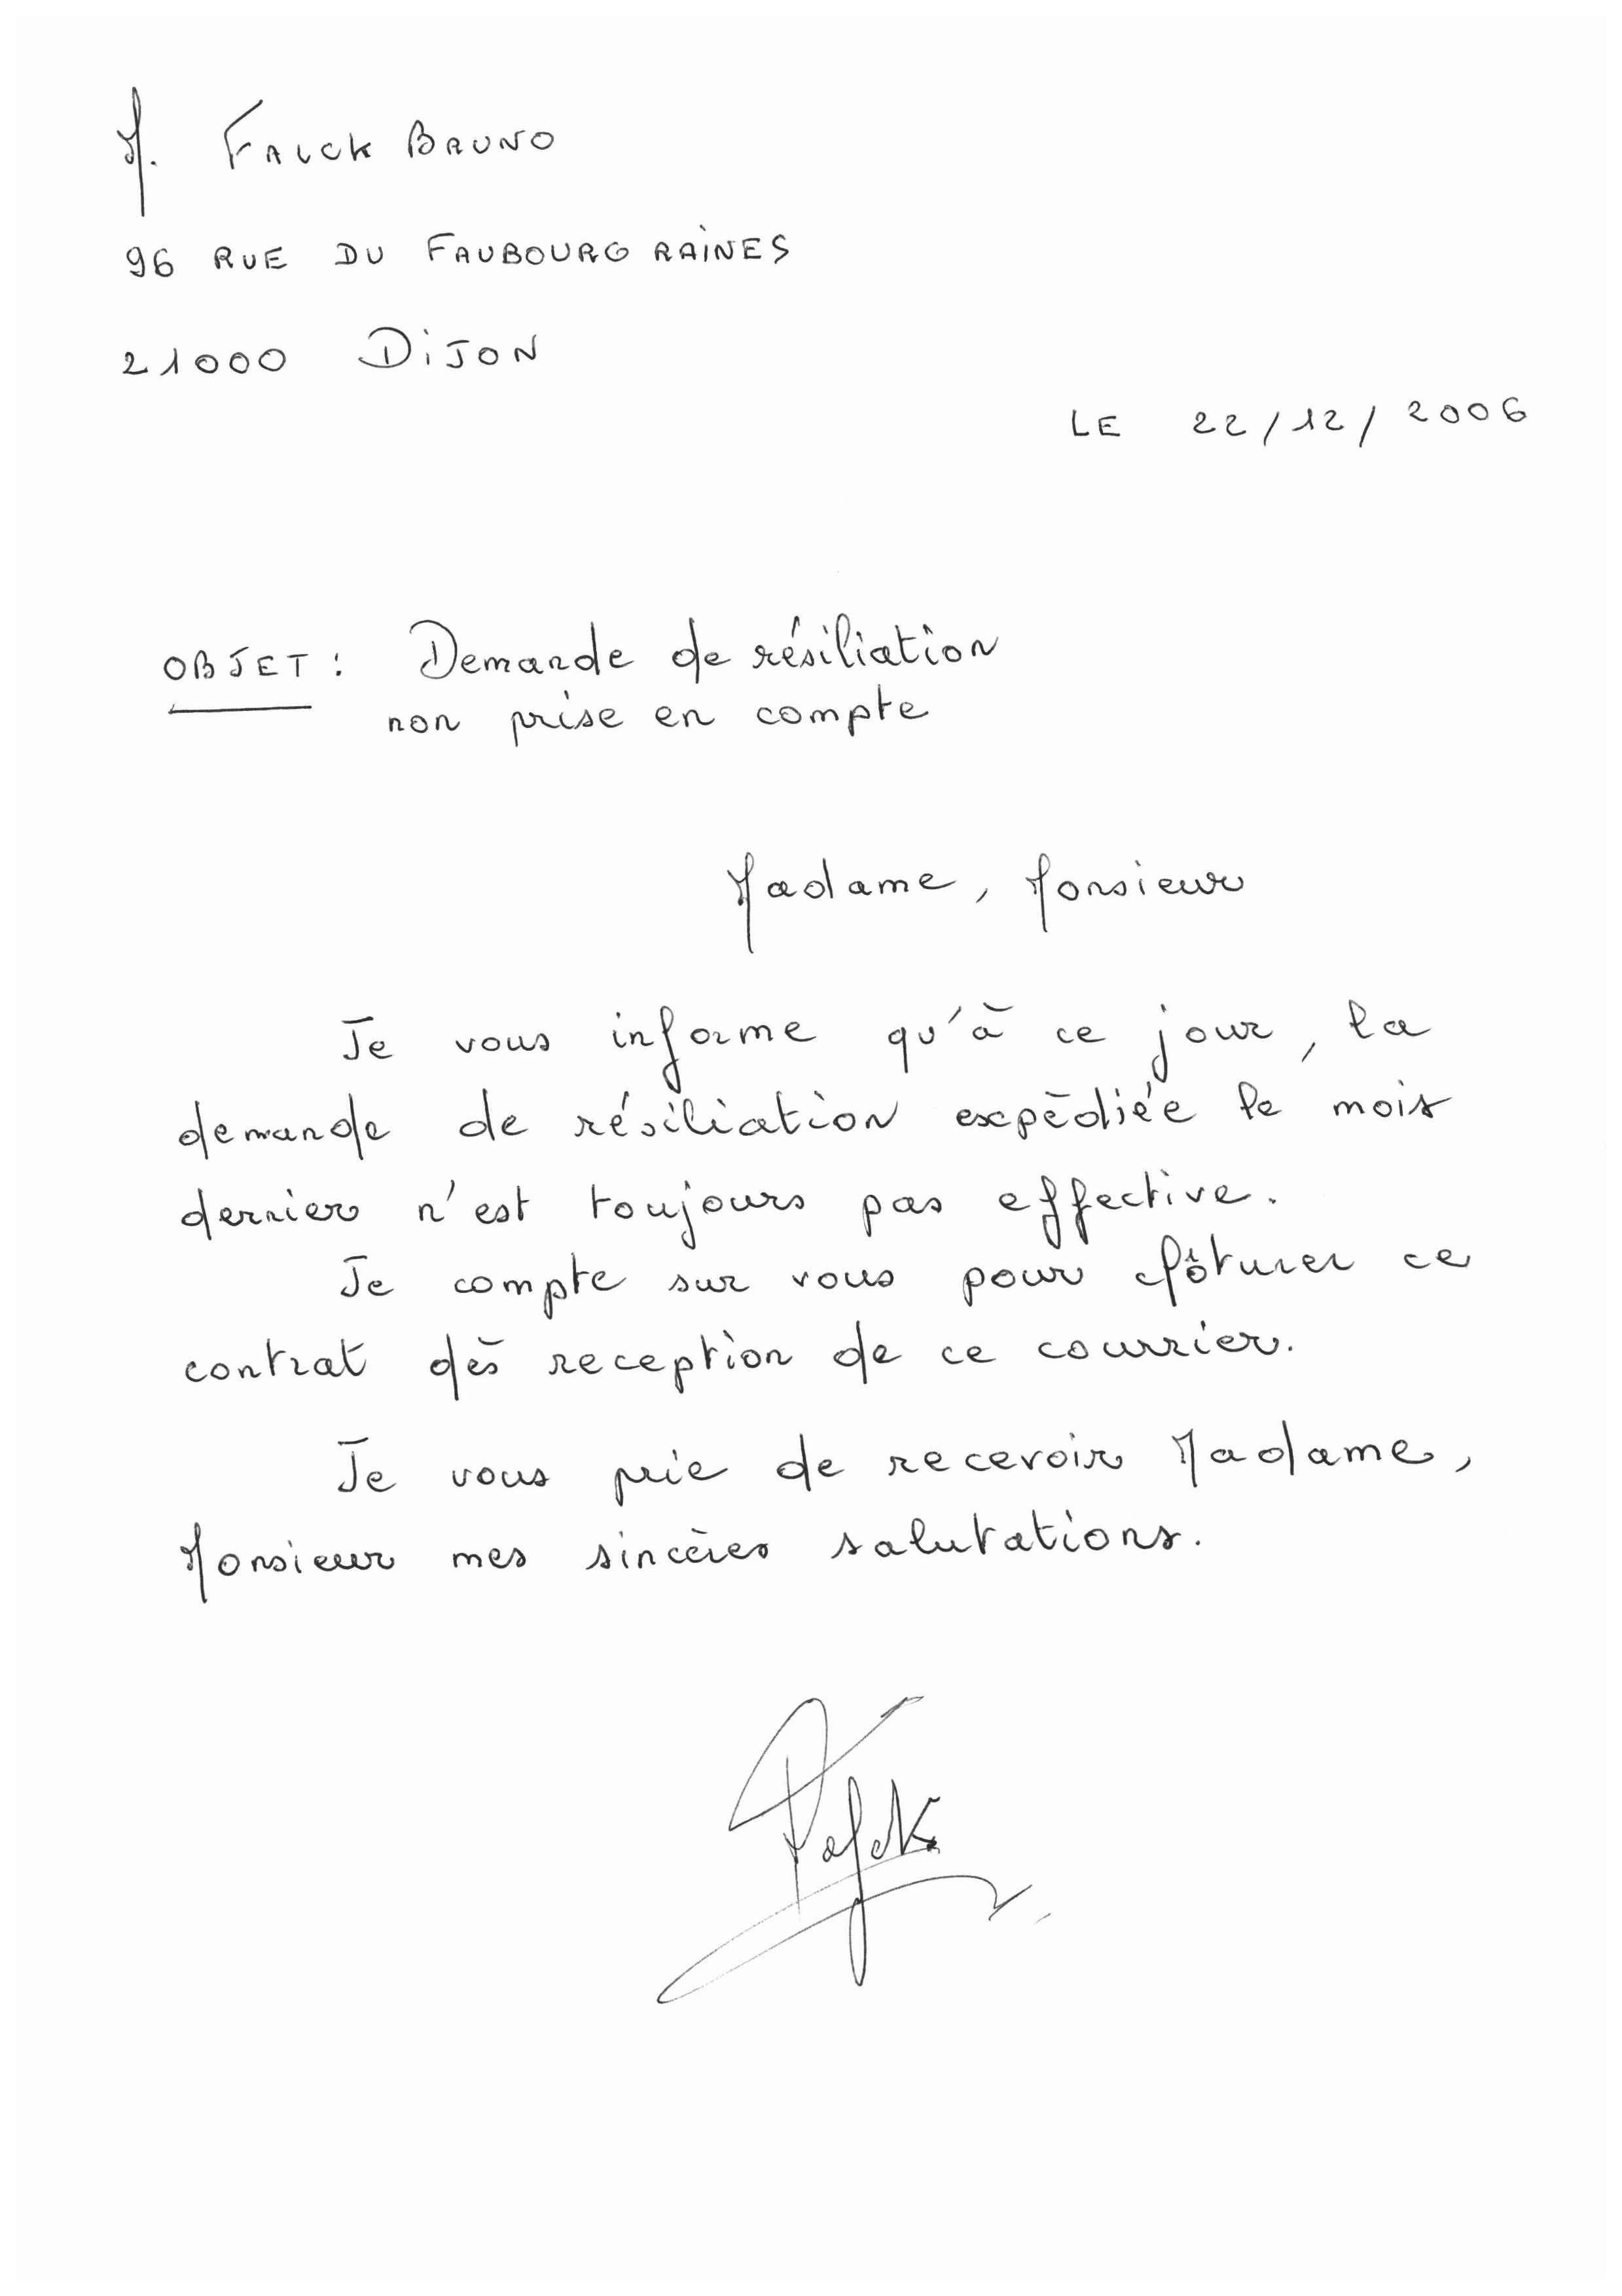 M. FALCK BRUNO
96 RUE DU FAUBOURG RAINES
21000 DIJON
LE 22/12/2006
OBJET : Demande de résiliation
non prise en compte
Madame, Monsieur
Je vous informe qu'à ce jour, la
demande de résiliation expédiée le mois
dernier n'est toujours pas effective.
Je compte sur vous pour clôturer ce
contrat dès reception de ce courrier.
Je vous prie de recevoir Madame,
Monsieur mes sincères salutations.
Falck